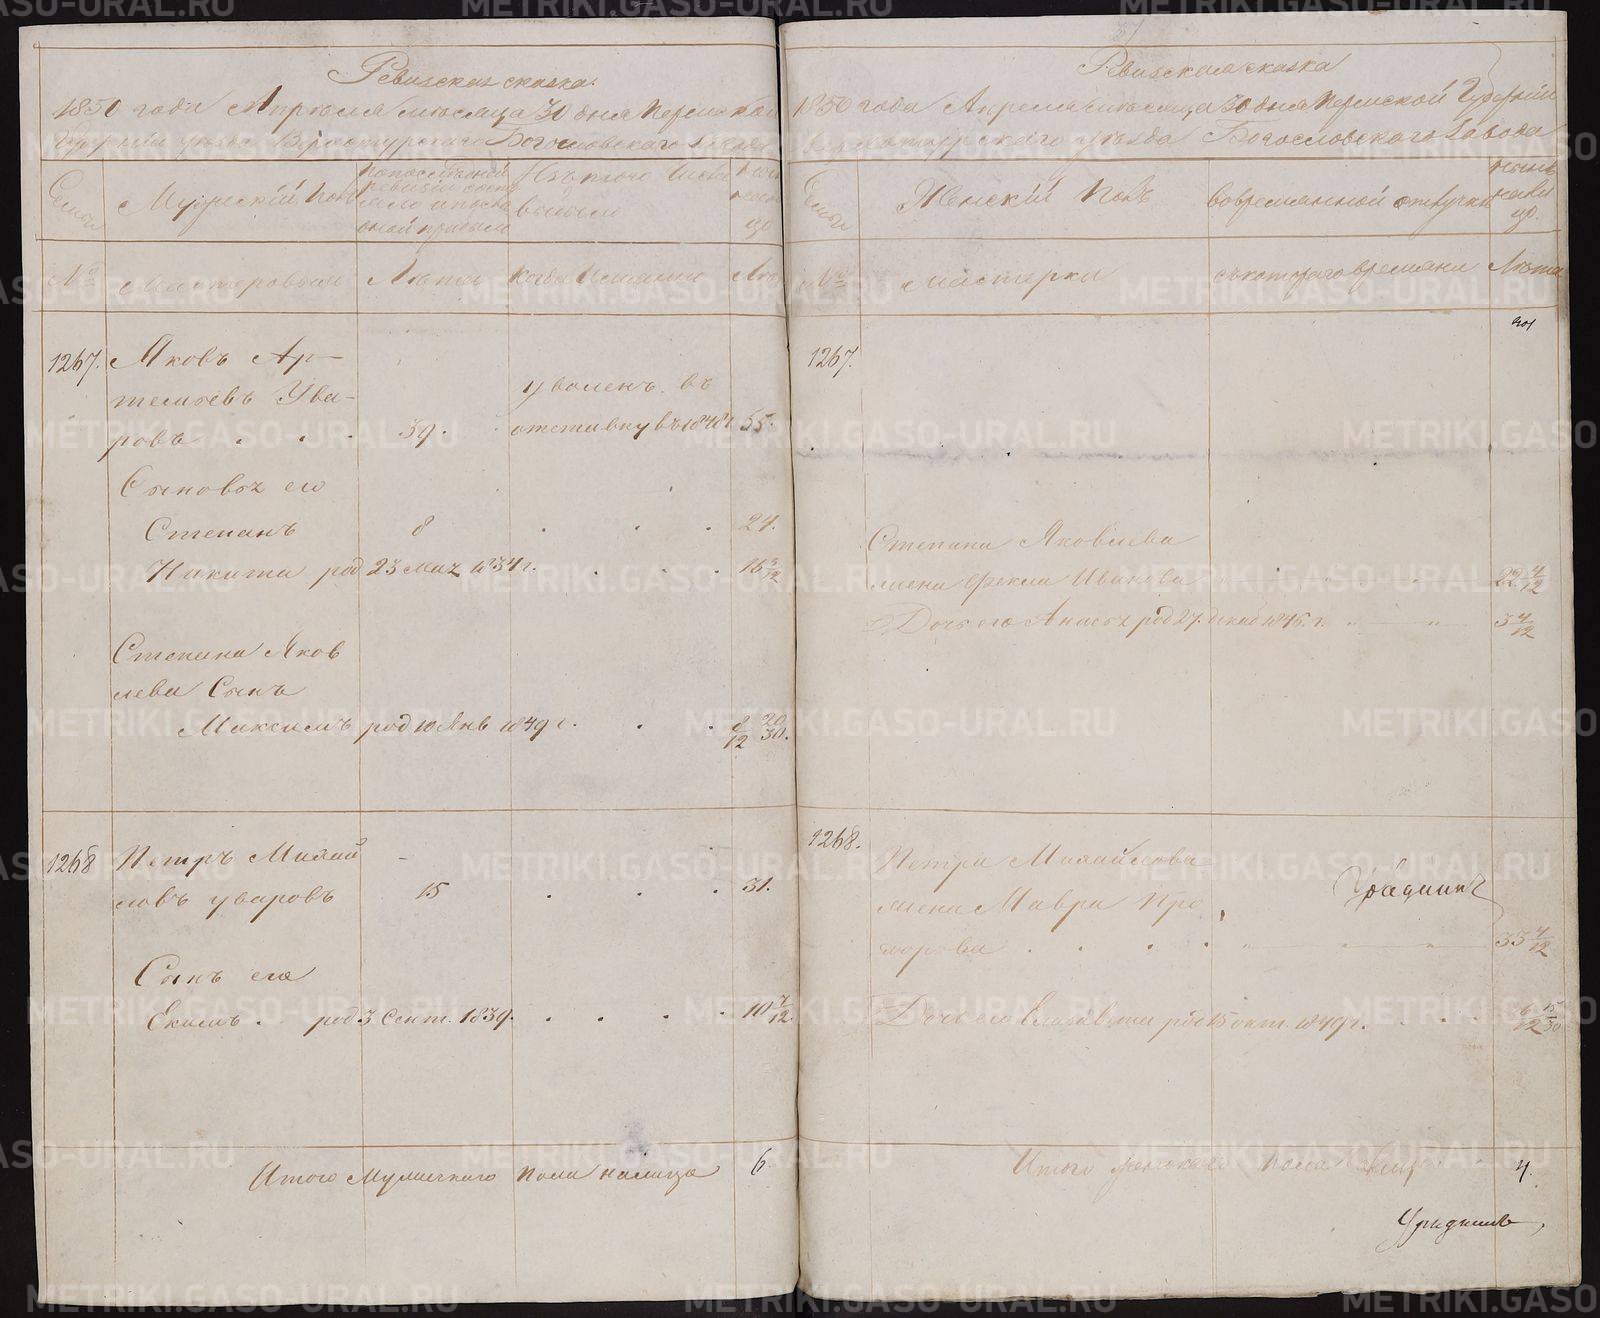 Ревизская сказка.
1850 года Апреля месяца 30 дня Пермской
Губернии уезда Верхотурскаго Богословскаго Завода
Семьи
Мужескій Полъ
По последней ревизіи состояло и после оной прибыло
Изъ того числа выбыло
Ныне на лицо
№
Мастеровыхъ
Лѣта
Когда Именно
Лѣта
1267.
Яковъ Ар-
темьевъ Ува-
ровъ
39.
уволенъ въ
отставку въ 1848 г
55.
Сыновья его
Степанъ
8
24.
Никита род 23 мая 1834 г.
Степана Яков
лева Сынъ
Максимъ род 10 Янв 1849 г.
8/12 20/30.
1268
Петръ Михай
ловъ Уваровъ
15
31.
Сынъ его
Екимъ род 3 Сент. 1839.
10 7/12.
Итого Мужескаго пола налицо 6.
Ревизская сказка
1850 года Апреля месяца 30 дня Пермской Губерніи
Верхотурскаго уезда Богословскаго Завода
Семьи
Женскій Полъ
во временной отлучке
ныне налицо.
№
Мастерки
съ котораго времяни
Лѣта
1267.
Степана Яковлева
жена Фекла Иванова
22 4/12
Дочь его Анисья род 27 декаб 1846 г.
3 4/12
1268.
Петра Михайлова
жена Мавра Про
хорова
35 4/12
Дочь его Елисавета род 15 окт. 1849 г.
6/12 15/30
Итого женскаго пола налицо
4.
METRIKI.GASO-URAL.RU